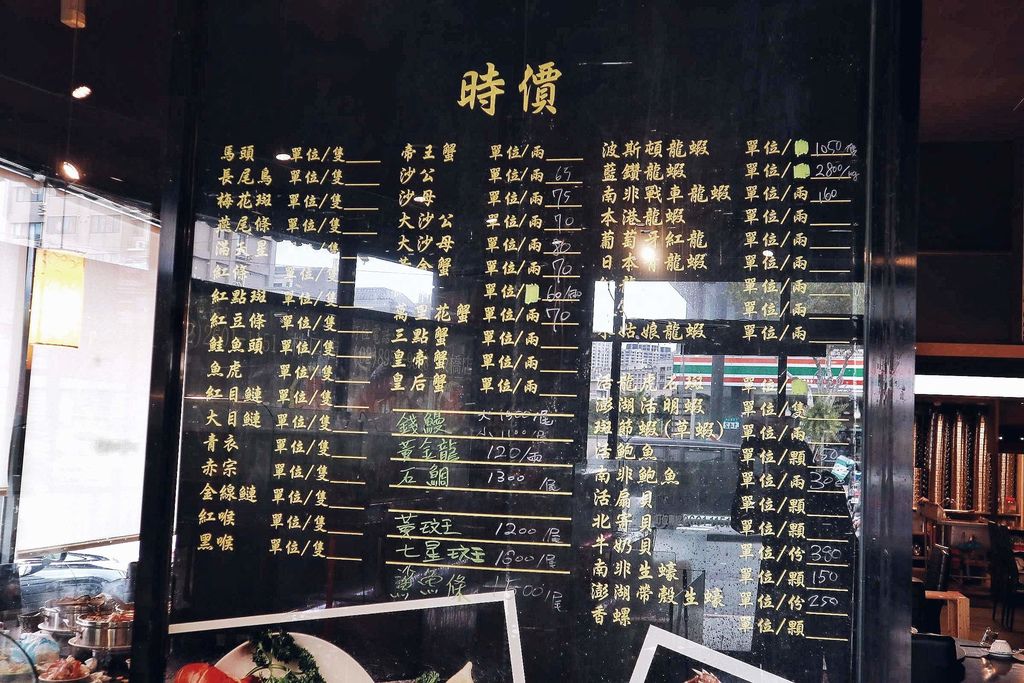 時價
馬頭 單位/隻
長尾鳥 單位/隻
梅花斑 單位/隻
燕尾條 單位/隻
滿天星 單位/隻
紅條 單位/隻
紅點斑 單位/隻
紅豆條 單位/隻
鮭魚頭 單位/隻
魚虎 單位/隻
紅目鰱 單位/隻
大目鰱 單位/隻
青衣 單位/隻
赤宗 單位/隻
金線鰱 單位/隻
紅喉 單位/隻
黑喉 單位/隻
帝王蟹 單位/兩
沙公 單位/兩 65
沙母 單位/兩 75
大沙公 單位/兩 70
大沙母 單位/兩 80
黃金蟹 單位/兩 70
單位/ 60/兩
萬里花蟹 單位/兩 70
三點蟹 單位/兩
皇帝蟹 單位/兩
皇后蟹 單位/兩
錢鰻 大1600/尾
小1100/尾
黃金龍 120/兩
石鯛 1300/尾
黃斑王 1200/尾
七星斑王 1600/尾
1500/尾
波斯頓龍蝦 單位/ 1050/隻
藍鑽龍蝦 單位/ 2800/kg
南非戰車龍蝦 單位/兩 160
本港龍蝦 單位/兩
葡萄牙紅龍 單位/兩
日本青龍蝦 單位/兩
單位/兩
單位/兩
小姑娘龍蝦 單位/兩
活龍虎石斑 單位/
澎湖活明蝦 單位/隻
斑節蝦(草蝦) 單位/兩
活鮑魚 單位/顆 150
南非鮑魚 單位/兩 300
活扇貝 單位/顆
北寄貝 單位/顆
牛奶貝 單位/份 380
南非生蠔 單位/顆 150
澎湖帶殼生蠔 單位/份 250
香螺 單位/顆